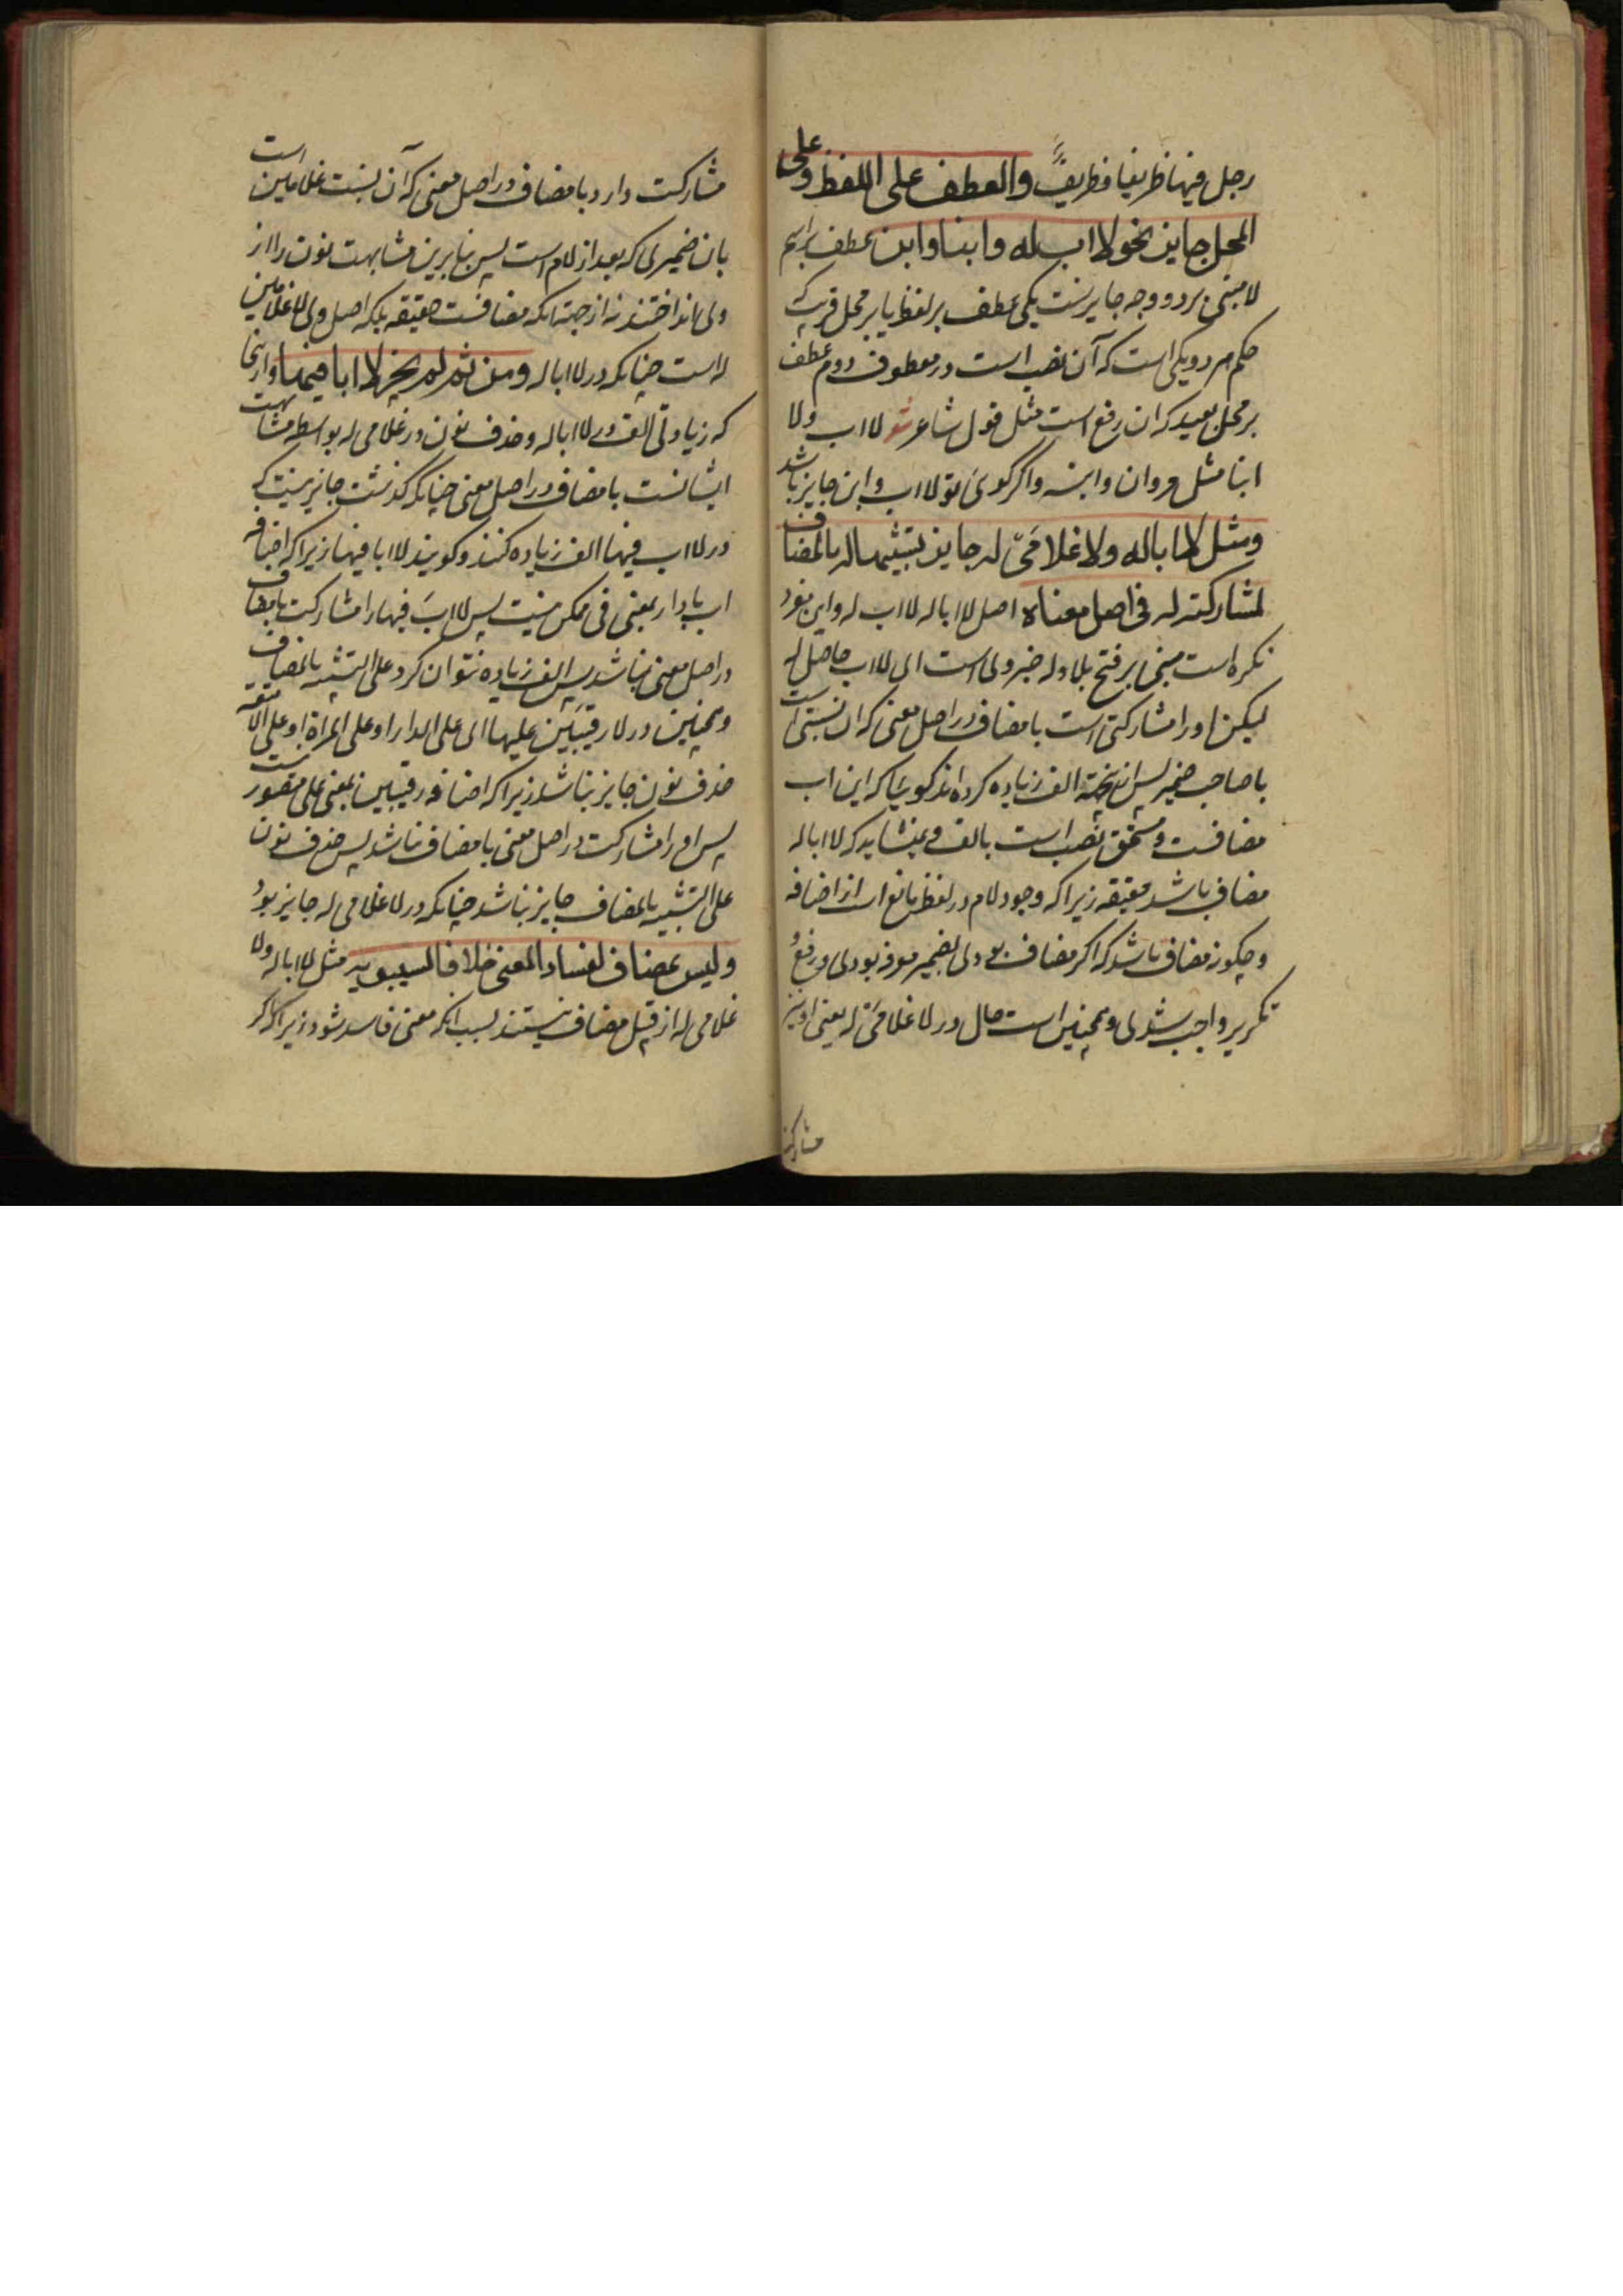 رجل فیها ظریفا فظریفٌ والعطف علی اللفظ وعلی
المحل جایز نحو لا اب له وابنا وابن عطف بر اسم
لا مبنی بر دو وجه جایزست یکی عطف بر لفظ یا بر محل قریب که
حکم هر دو یکی است که آن نصب است در معطوف دوم عطف
بر محل بعید که ان رفع است مثل قول شاعر شعر لا اب ولا
ابنا مثل مروان وابنه واکر کوی تو لا اب وابن جایز باشد
ومثل لا ابا له ولا غلامَیْ له جایز تشبیها له بالمضاف
لمشارکته له فی اصل معناه اصل لا ابا له لا اب له و این
نکره است مبنی بر فتح بلا وله خبر وی است ای لا اب حاصل له
لیکن او را مشارکتی است با مضاف در اصل معنی که ان نسبتی است
با صاحب ضمیر پس ازین جهته الف زیاده کرده اند کویا که این اب
مضافست و مستحق نصب است بالف و نمیشاید که لا ابا له
مضاف باشد حقیقه زیرا که وجود لام در لفظ مانع است از اضافه
و چکونه مضاف باشد که اکر مضاف بودی بضمیر معرفه بودی و رفع و
تکریر واجب شدی و همچنین است حال در لا غلامَیْ له یعنی او نیز
مشارکت
مشارکت دارد با مضاف در اصل معنی که آن نسبت غلامین است
بان ضمیری که بعد از لام است پس بنا برین مشابهت نون را از
وی انداختند نه از جهته انکه مضافست حقیقه بلکه اصل وی لا غلامین
له است چنانکه در لا ابا له ومن ثم لم یجز لا ابا فیها و ازینجا
که زیادتی الف در لا ابا له و حذف نون در غلامی له بواسطه مشابهت
ایشانست با مضاف در اصل معنی چنانکه کذشت جایز نیست که
در لا اب فیها الف زیاده کنند و کویند لا ابا فیها زیرا که اضافه
اب با دار بمعنی فی ممکن نیست پس لا ابَ فیها را مشارکت با مضاف
در اصل معنی نباشد پس الف زیاده نتوان کرد علی التشبیه بالمضاف
و همچنین در لا رقیبَین علیها ای علی الدار او علی المراة او علی
حذف نون جایز نباشد زیرا که اضافه رقیبین بمعنی علی متصور نیست
پس او را مشارکت در اصل معنی با مضاف نباشد پس حذف نون
علی التشبیه بالمضاف جایز نباشد چنانکه در لا غلامی له جایز بود
ولیس بمضاف لفساد المعنی خلافا لسیبویه مثل لا ابا له ولا
غلامی له از قبیل مضاف نیستند بسبب انکه معنی فاسد شود زیرا که اکر